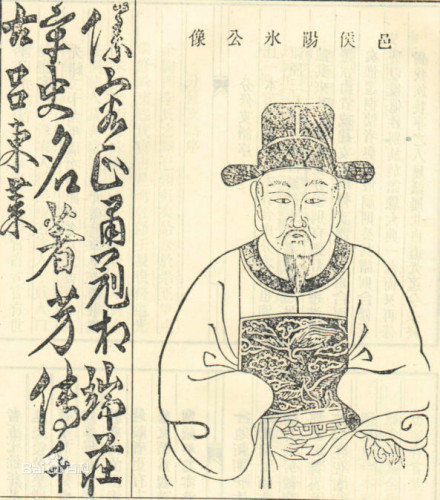 邑侯陽氷公像
像容正冠相端莊
史名著芳傳千
古呂東萊
Bai百科